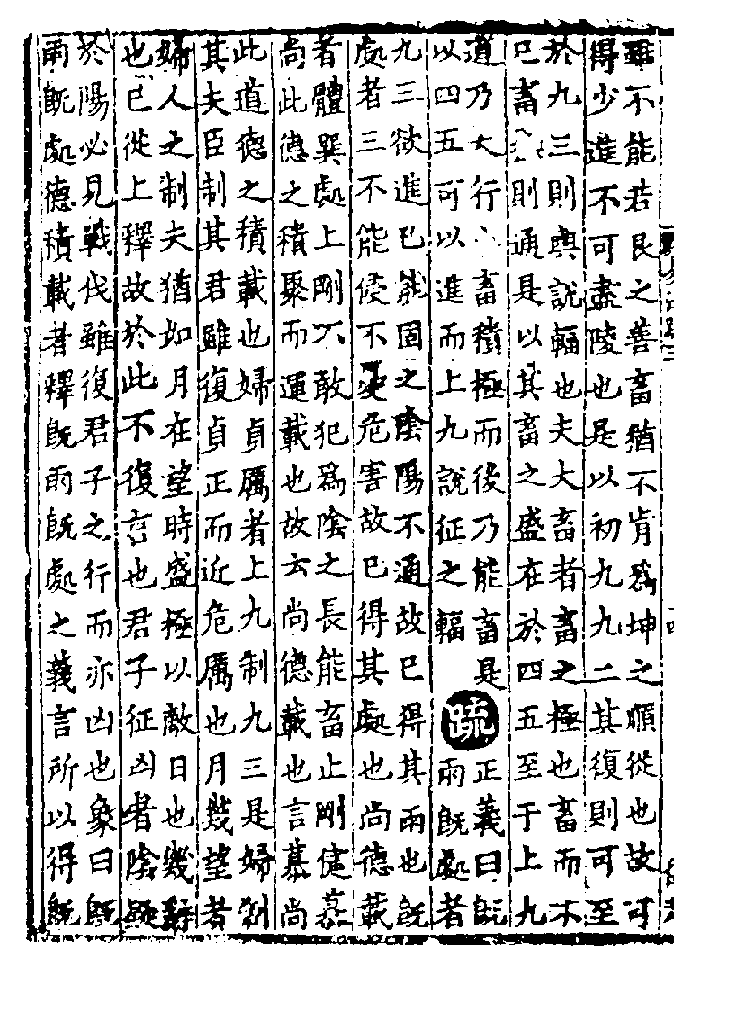 雖不能若艮之善畜猶不肯爲坤之順從也故可
得少進不可盡陵也是以初九九二其復則可至
於九三則輿說輻也夫大畜者畜之極也畜而不
已畜則通是以其畜之盛在於四五至于上九
道乃大行小畜積極而後乃能畜是
以四五可以進而上九說征之輻
疏
正義曰既
雨既處者
九三欲進已能固之陰陽不通故已得其雨也既
處者三不能侵不憂危害故已得其處也尚德載
者體巽處上剛不敢犯爲陰之長能畜止剛健慕
尚此德之積聚而運載也故云尚德載也言慕尚
此道德之積載也婦貞厲者上九制九三是婦制
其夫臣制其君雖復貞正而近危厲也月幾望者
婦人之制夫猶如月在望時盛極以敵日也幾辭
也已從上釋故於此不復言也君子征凶者陰疑
於陽必見戰伐雖復君子之行而亦凶也象曰既
雨既處德積載者釋既雨既處之義言所以得既